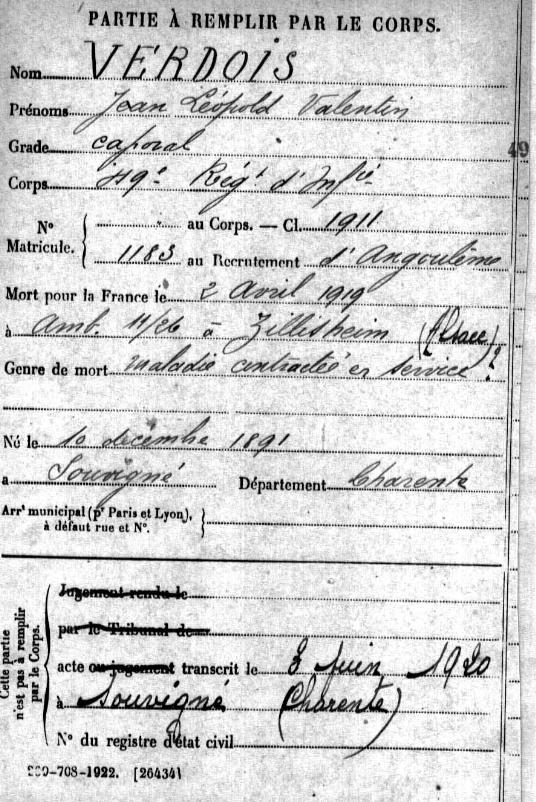 PARTIE À REMPLIR PAR LE CORPS.
Nom VERDOIS
Prénoms Jean Léopold Valentin
Grade caporal
49
Corps 49e Régt d'Infie
No Matricule. { au Corps. — Cl. 1911
1183 au Recrutement d'Angoulême
Mort pour la France le 2 Avril 1919
à Amb. 11/26 à Zillisheim (Alsace)
Genre de mort maladie contractée en service
Né le 10 décembre 1891
à Souvigné Département Charente
Arrt municipal (pr Paris et Lyon), à défaut rue et No.
Cette partie n'est pas à remplir par le Corps.
Jugement rendu le
par le Tribunal de
acte ou jugement transcrit le 3 Juin 1920
à Souvigné (Charente)
No du registre d'état civil
-708-1922. [26434]